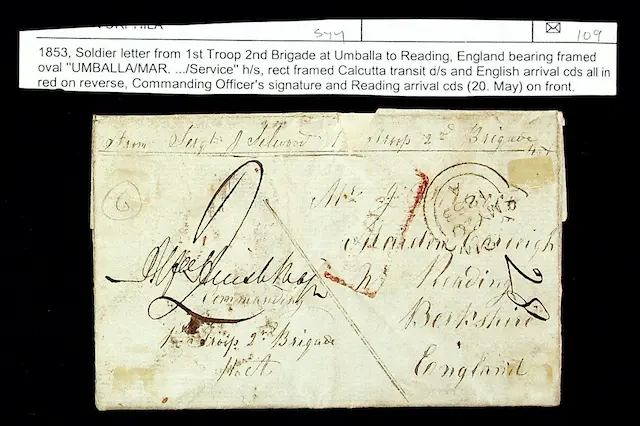 syy
109
1853, Soldier letter from 1st Troop 2nd Brigade at Umballa to Reading, England bearing framed
oval "UMBALLA/MAR. .../Service" h/s, rect framed Calcutta transit d/s and English arrival cds all in
red on reverse, Commanding Officer's signature and Reading arrival cds (20. May) on front.
From Sergt J Selwood 1 Troop 2nd Brigade
6
2
Mr J
Reading
28
Commanding
Berkshire
1st Troop 2nd Brigade
England